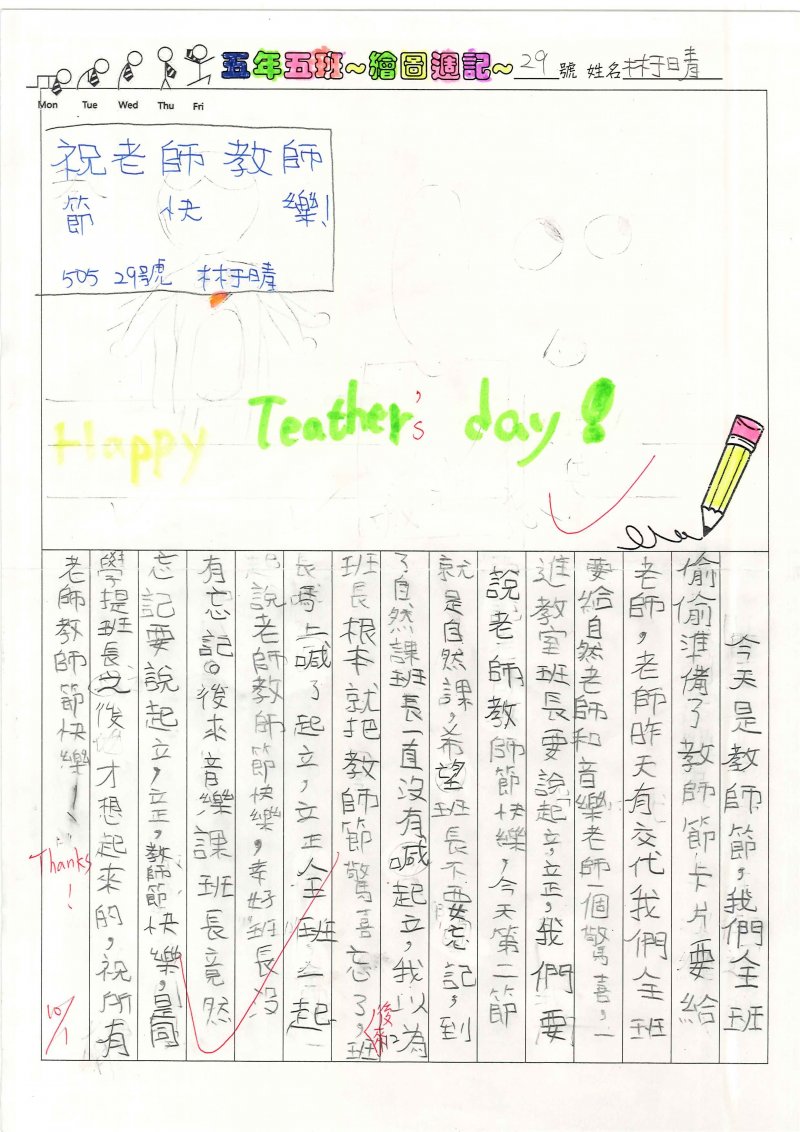 五年五班~繪圖週記~ 29 號 姓名 林于晴
Mon Tue Wed Thu Fri
祝老師教師
節快樂!
505 29號 林于晴
Happy Teather's day!
今天是教師節,我們全班
偷偷準備了教師節卡片要給
老師,老師昨天有交代我們全班
要給自然老師和音樂老師一個驚喜,一
進教室班長要說起立,立正,我們要
說老師教師節快樂,今天第二節
就是自然課,希望班長不要忘記,到
了自然課班長一直沒有喊起立,我以為
班長根本就把教師節驚喜忘了,後來班
長馬上喊了起立,立正全班一起
說老師教師節快樂,幸好班長沒
有忘記。後來音樂課班長竟然
忘記要說起立,立正,教師節快樂,是同
學提班長之後才想起來的,祝所有
老師教師節快樂!
Thanks!
10/1